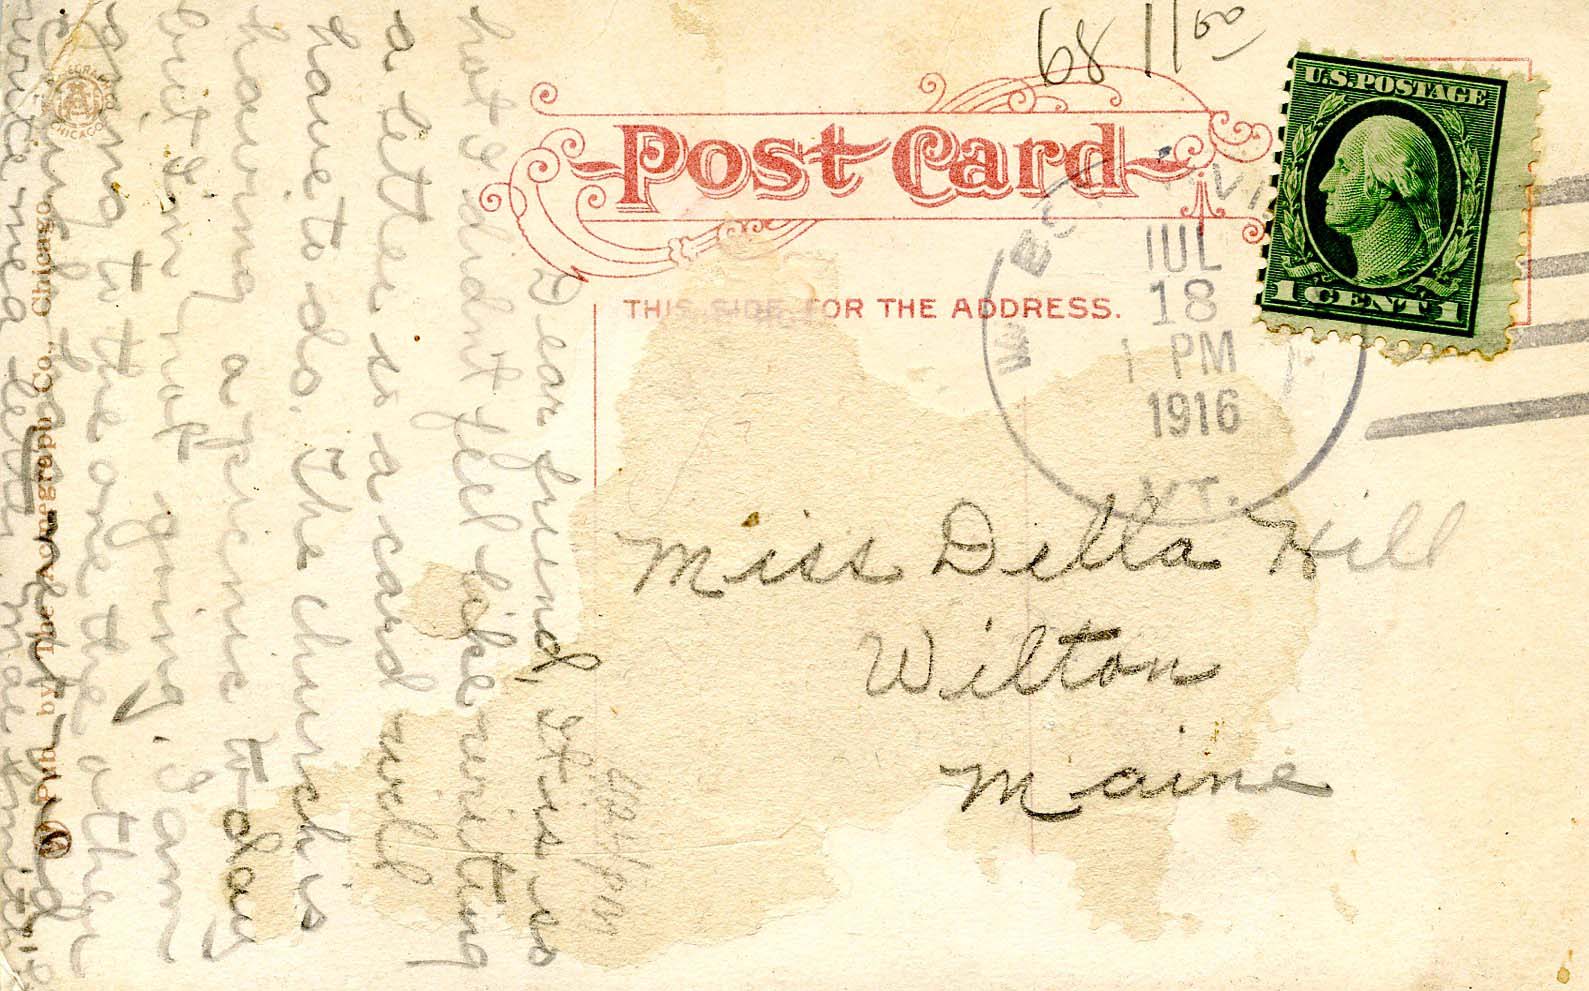 68 11 00
U.S. POSTAGE
1 CENT 1
Post Card
THIS SIDE FOR THE ADDRESS.
JUL
18
1 PM
1916
VT.
Miss Della Hill
Wilton
Maine
Monday
Dear friend, It is so
hot I didnt feel like writing
a letter so a card will
have to do. The church is
having a picnic today
but I'm not going. I am
going to the one the other
church has next week
write me a letter, Mae Smith
Pub. by The Acmegraph Co., Chicago
ACMEGRAPH CO
CHICAGO